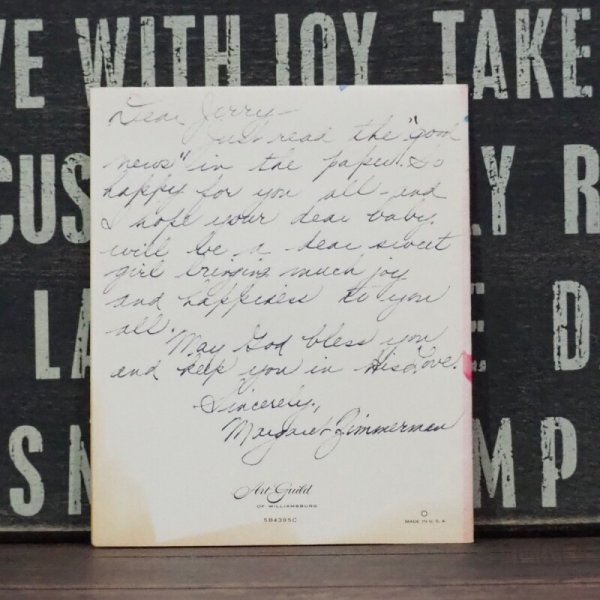 VE WITH JOY TAKE
CUS
LY R
LA
E D
SN
MP
Dear Jerry—
Just read the "good
news" in the paper. So
happy for you all – and
I hope your dear baby
will be a dear sweet
girl bringing much joy
and happiness to you
all.
May God bless you
and keep you in His Love.
Sincerely,
Margaret Zimmerman
Art Guild
OF WILLIAMSBURG
5B4395C
MADE IN U.S.A.